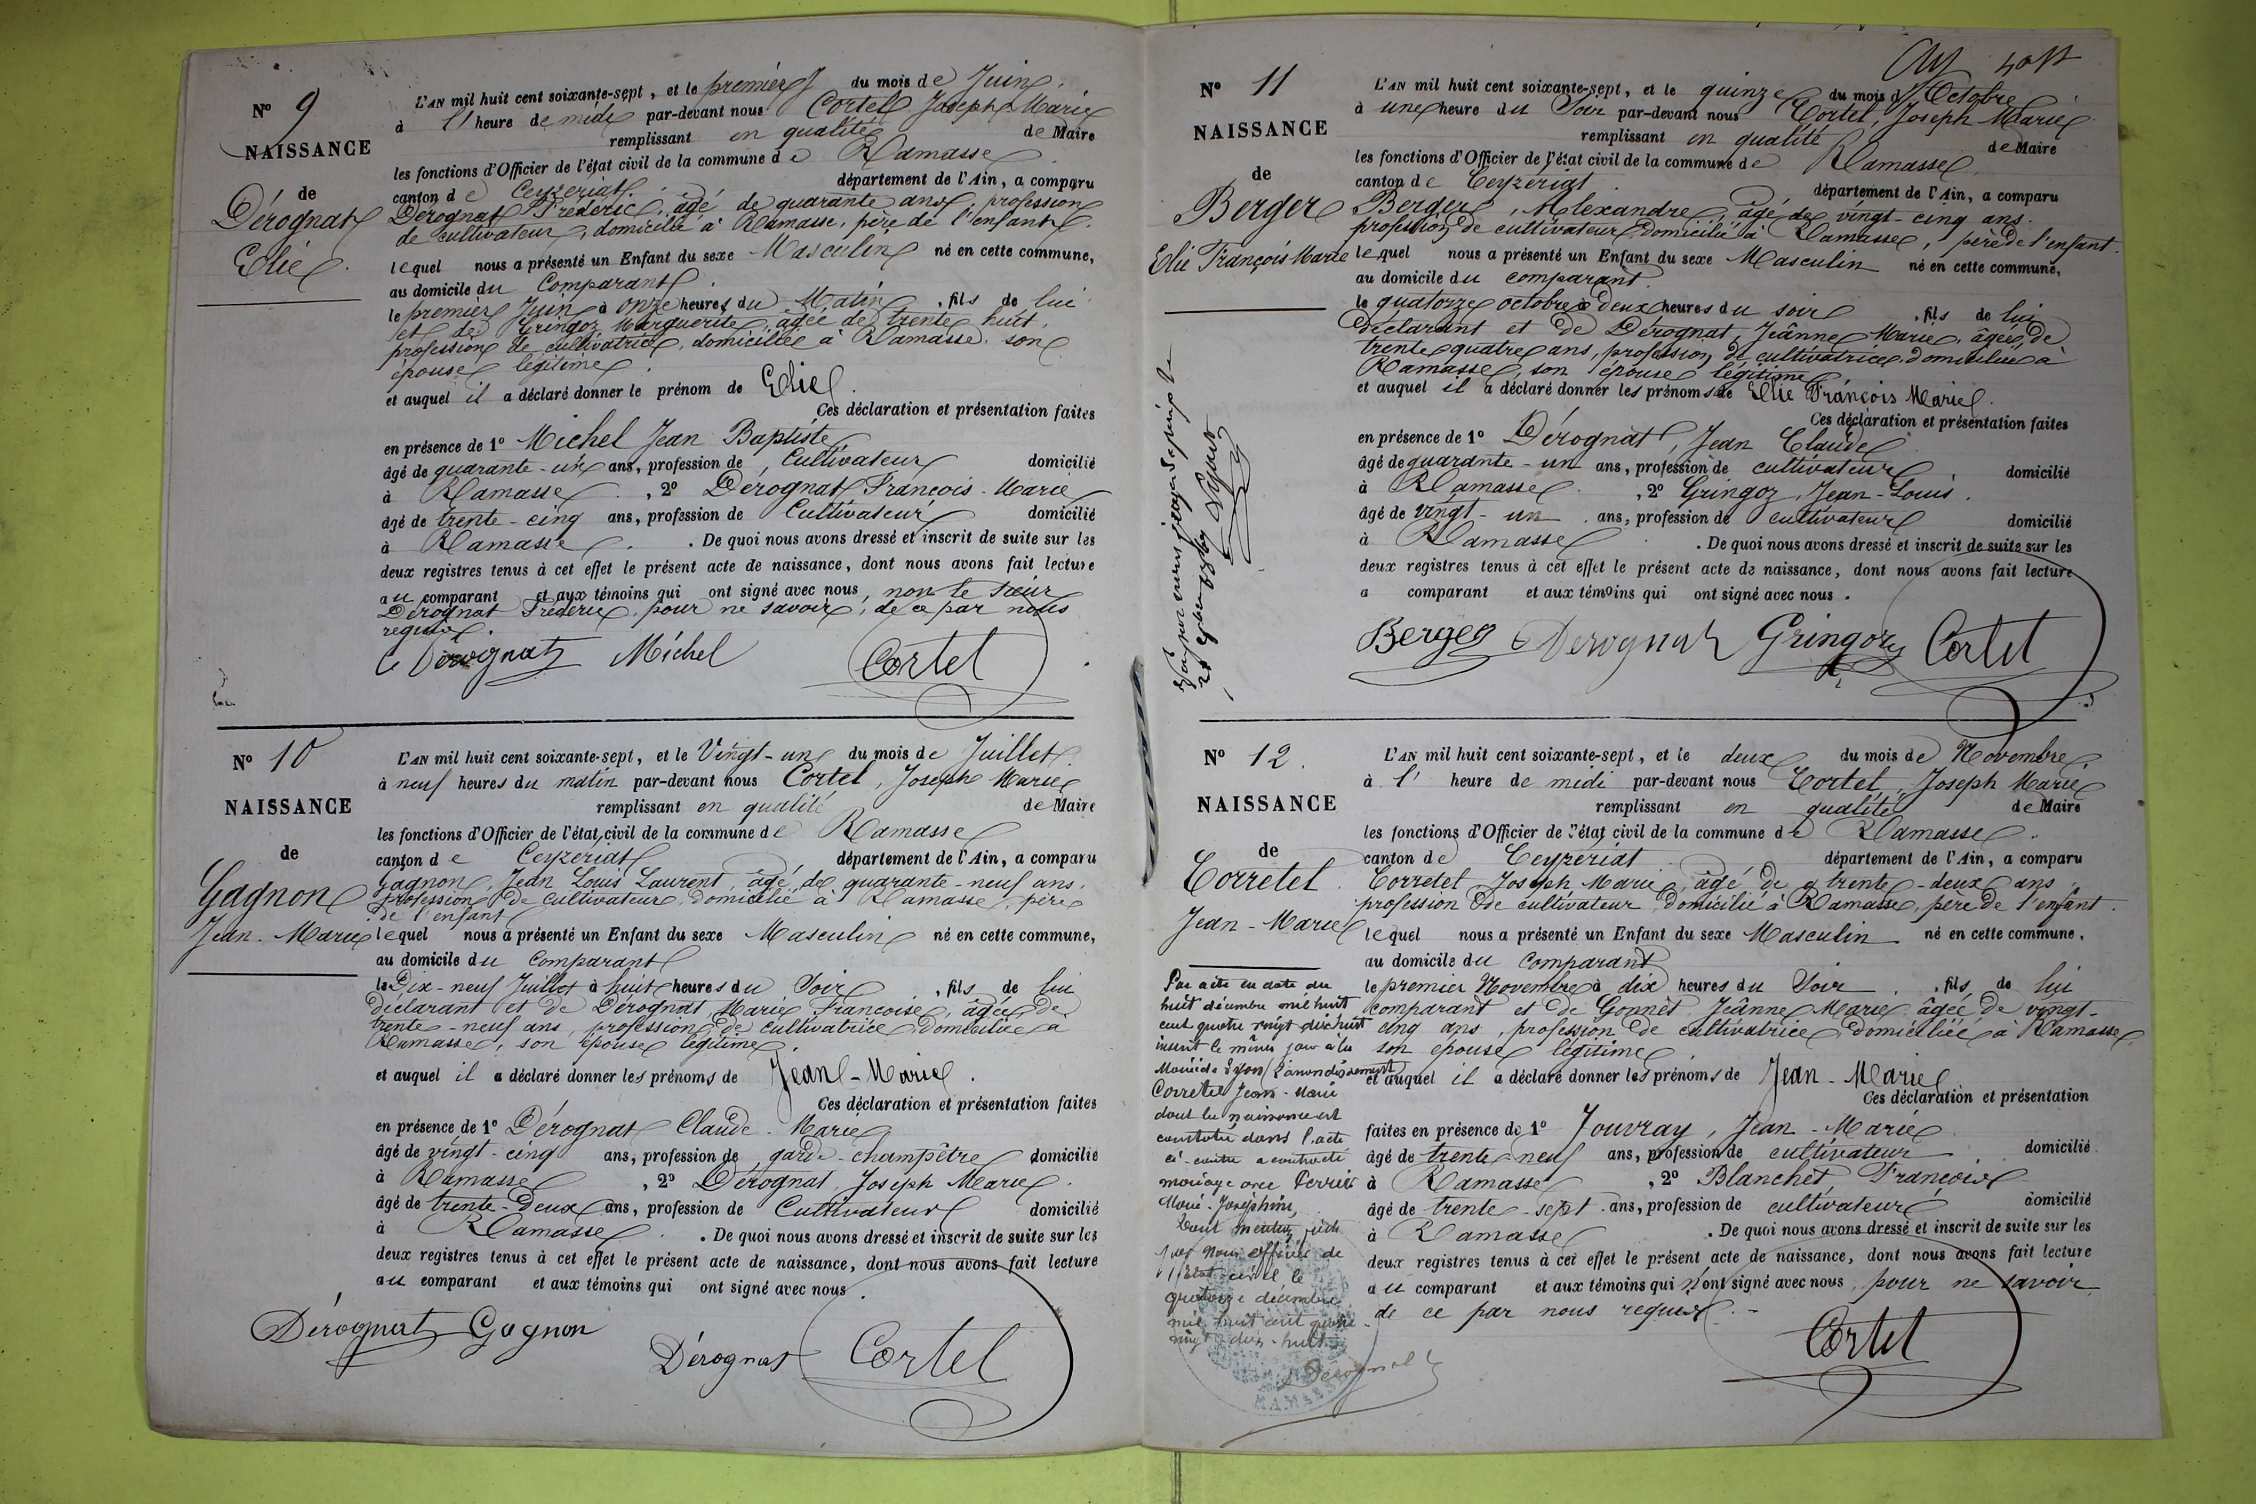 N° 9
NAISSANCE
de
Dérognat
Elie
L'AN mil huit cent soixante-sept, et le premier du mois de Juin
à l' heure de midi par-devant nous Cortet Joseph Marie
remplissant en qualité de Maire
les fonctions d'Officier de l'état civil de la commune de Ramasse
canton de Ceyzériat département de l'Ain, a comparu
Dérognat Frédéric, âgé de quarante ans, profession
de cultivateur, domicilié à Ramasse, père de l'enfant
lequel nous a présenté un Enfant du sexe Masculin né en cette commune,
au domicile du Comparant
le premier Juin à onze heures du Matin, fils de lui
et de Gringoz Marguerite, âgée de trente huit,
profession de cultivatrice, domiciliée à Ramasse, son
épouse légitime.
et auquel il a déclaré donner le prénom de Elie.
Ces déclaration et présentation faites
en présence de 1° Michel Jean Baptiste
âgé de quarante-un ans, profession de, Cultivateur domicilié
à Ramasse, 2° Dérognat François-Marie
âgé de trente-cinq ans, profession de Cultivateur domicilié
à Ramasse. De quoi nous avons dressé et inscrit de suite sur les
deux registres tenus à cet effet le présent acte de naissance, dont nous avons fait lecture
au comparant et aux témoins qui ont signé avec nous, non le sieur
Dérognat Frédéric, pour ne savoir, de ce par nous
requis.
Dérognat Michel Cortet
N° 10
NAISSANCE
de
Gagnon
Jean-Marie
L'AN mil huit cent soixante-sept, et le Vingt-un du mois de Juillet.
à neuf heures du matin par-devant nous Cortet, Joseph Marie
remplissant en qualité de Maire
les fonctions d'Officier de l'état civil de la commune de Ramasse
canton de Ceyzériat département de l'Ain, a comparu
Gagnon, Jean Louis Laurent, âgé de quarante-neuf ans,
profession de cultivateur, domicilié à Ramasse, père
de l'enfant
lequel nous a présenté un Enfant du sexe Masculin né en cette commune,
au domicile du Comparant
le Dix-neuf Juillet à huit heures du Soir, fils de lui
déclarant et de Dérognat, Marie Françoise, âgée de
trente-neuf ans, profession de cultivatrice domiciliée à
Ramasse, son épouse légitime.
et auquel il a déclaré donner les prénoms de Jean-Marie.
Ces déclaration et présentation faites
en présence de 1° Dérognat Claude-Marie
âgé de vingt-cinq ans, profession de garde-champêtre domicilié
à Ramasse, 2° Dérognat, Joseph Marie.
âgé de trente-deux ans, profession de Cultivateur domicilié
à Ramasse. De quoi nous avons dressé et inscrit de suite sur les
deux registres tenus à cet effet le présent acte de naissance, dont nous avons fait lecture
au comparant et aux témoins qui ont signé avec nous.
Dérognat Gagnon
Dérognat Cortet
N° 11
NAISSANCE
de
Berger
Elie François Marie
L'AN mil huit cent soixante-sept, et le quinze du mois d'Octobre
à une heure du Soir par-devant nous Cortet, Joseph Marie
remplissant en qualité de Maire
les fonctions d'Officier de l'état civil de la commune de Ramasse
canton de Ceyzériat département de l'Ain, a comparu
Berger, Alexandre, âgé de vingt-cinq ans.
profession de cultivateur domicilié à Ramasse, père de l'enfant.
lequel nous a présenté un Enfant du sexe Masculin né en cette commune,
au domicile du comparant.
le quatorze octobre à deux heures du soir, fils de lui
déclarant et de Dérognat, Jeânne Marie, âgée de
trente quatre ans, profession de cultivatrice, domiciliée à
Ramasse, son épouse légitime
et auquel il a déclaré donner les prénoms de Elie François Marie.
Ces déclaration et présentation faites
en présence de 1° Dérognat, Jean Claude
âgé de quarante-un ans, profession de cultivateur domicilié
à Ramasse, 2° Gringoz, Jean-Louis.
âgé de vingt-un ans, profession de cultivateur domicilié
à Ramasse. De quoi nous avons dressé et inscrit de suite sur les
deux registres tenus à cet effet le présent acte de naissance, dont nous avons fait lecture
a comparant et aux témoins qui ont signé avec nous.
Berger Dérognat Gringoz Cortet
N° 12.
NAISSANCE
de
Corretel
Jean-Marie
Par acte en date du
huit décembre mil huit
cent quatre vingt dix huit
inscrit le même jour à la
Mairie de Lyon arrondissement
Corretel Jean-Marie
dont la naissance est
constatée dans l'acte
ci-contre a contracté
mariage avec Perrier
Marie-Joséphine
Dont mention faite
par Nous officier de
l'Etat civil le
quatorze décembre
mil huit cent quatre
vingt dix-huit
Dérognat
RAMASSE
L'AN mil huit cent soixante-sept, et le deux du mois de Novembre
à l' heure de midi par-devant nous Cortet, Joseph Marie
remplissant en qualité de Maire
les fonctions d'Officier de l'état civil de la commune de Ramasse.
canton de Ceyzériat département de l'Ain, a comparu
Corretel Joseph Marie, âgé de trente-deux ans,
profession de cultivateur, domicilié à Ramasse, père de l'enfant.
lequel nous a présenté un Enfant du sexe Masculin né en cette commune,
au domicile du comparant
le premier Novembre à dix heures du Soir, fils de lui
comparant et de Gonnet Jeânne Marie âgée de vingt-
cinq ans, profession de cultivatrice domiciliée à Ramasse
son épouse légitime
et auquel il a déclaré donner les prénoms de Jean-Marie
Ces déclaration et présentation
faites en présence de 1° Jouvray, Jean-Marie
âgé de trente-neuf ans, profession de cultivateur domicilié
à Ramasse, 2° Blanchet François
âgé de trente-sept ans, profession de cultivateur domicilié
à Ramasse. De quoi nous avons dressé et inscrit de suite sur les
deux registres tenus à cet effet le présent acte de naissance, dont nous avons fait lecture
au comparant et aux témoins qui n'ont signé avec nous, pour ne savoir
de ce par nous requis.
Cortet